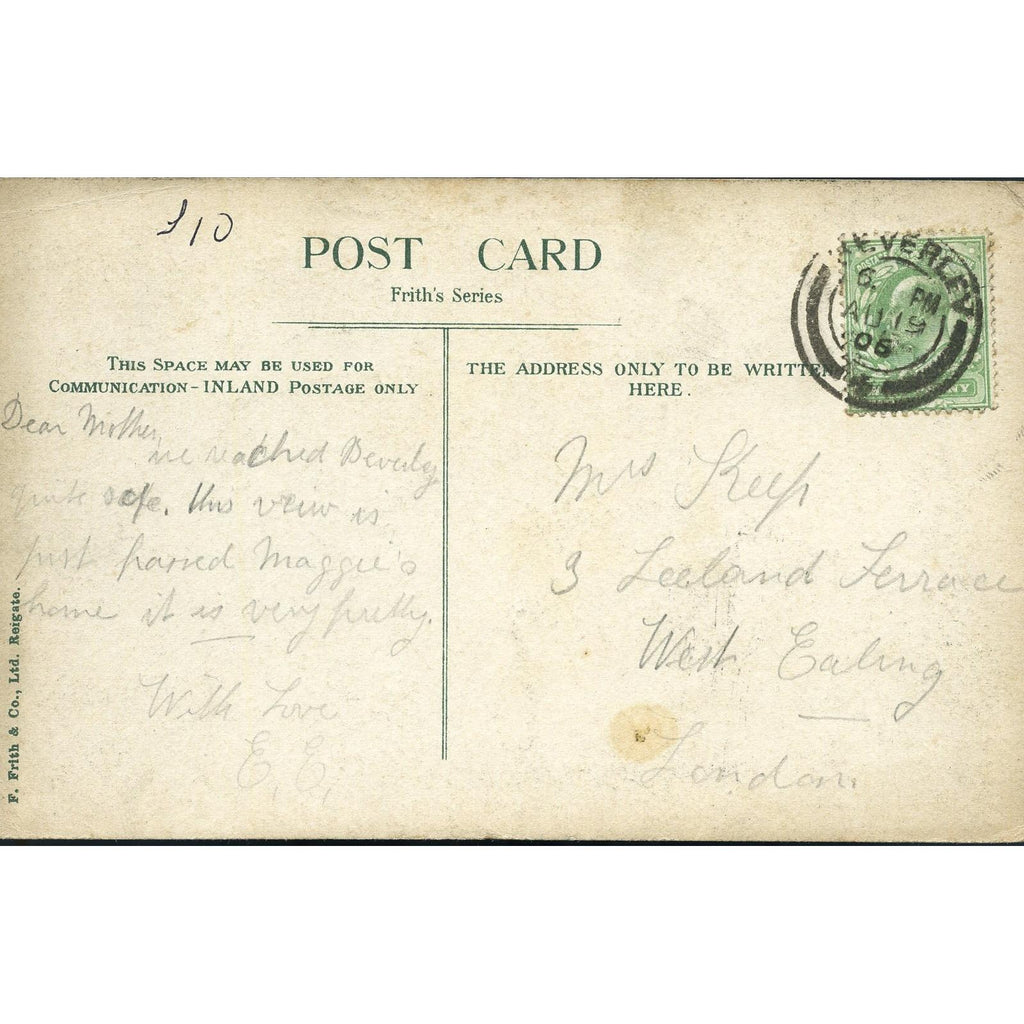 £10
POST CARD
Frith's Series
THIS SPACE MAY BE USED FOR
COMMUNICATION-INLAND POSTAGE ONLY
THE ADDRESS ONLY TO BE WRITTEN
HERE.
EVERLEY
PM
AU 15
06
Dear Mother,
we reached Beverley
quite safe. this veiw is
just passed Maggie's
home it is very pretty.
With Love
E. E.
Mrs Keep
3 Leeland Terrace
West Ealing
London.
F. Frith & Co., Ltd. Reigate.